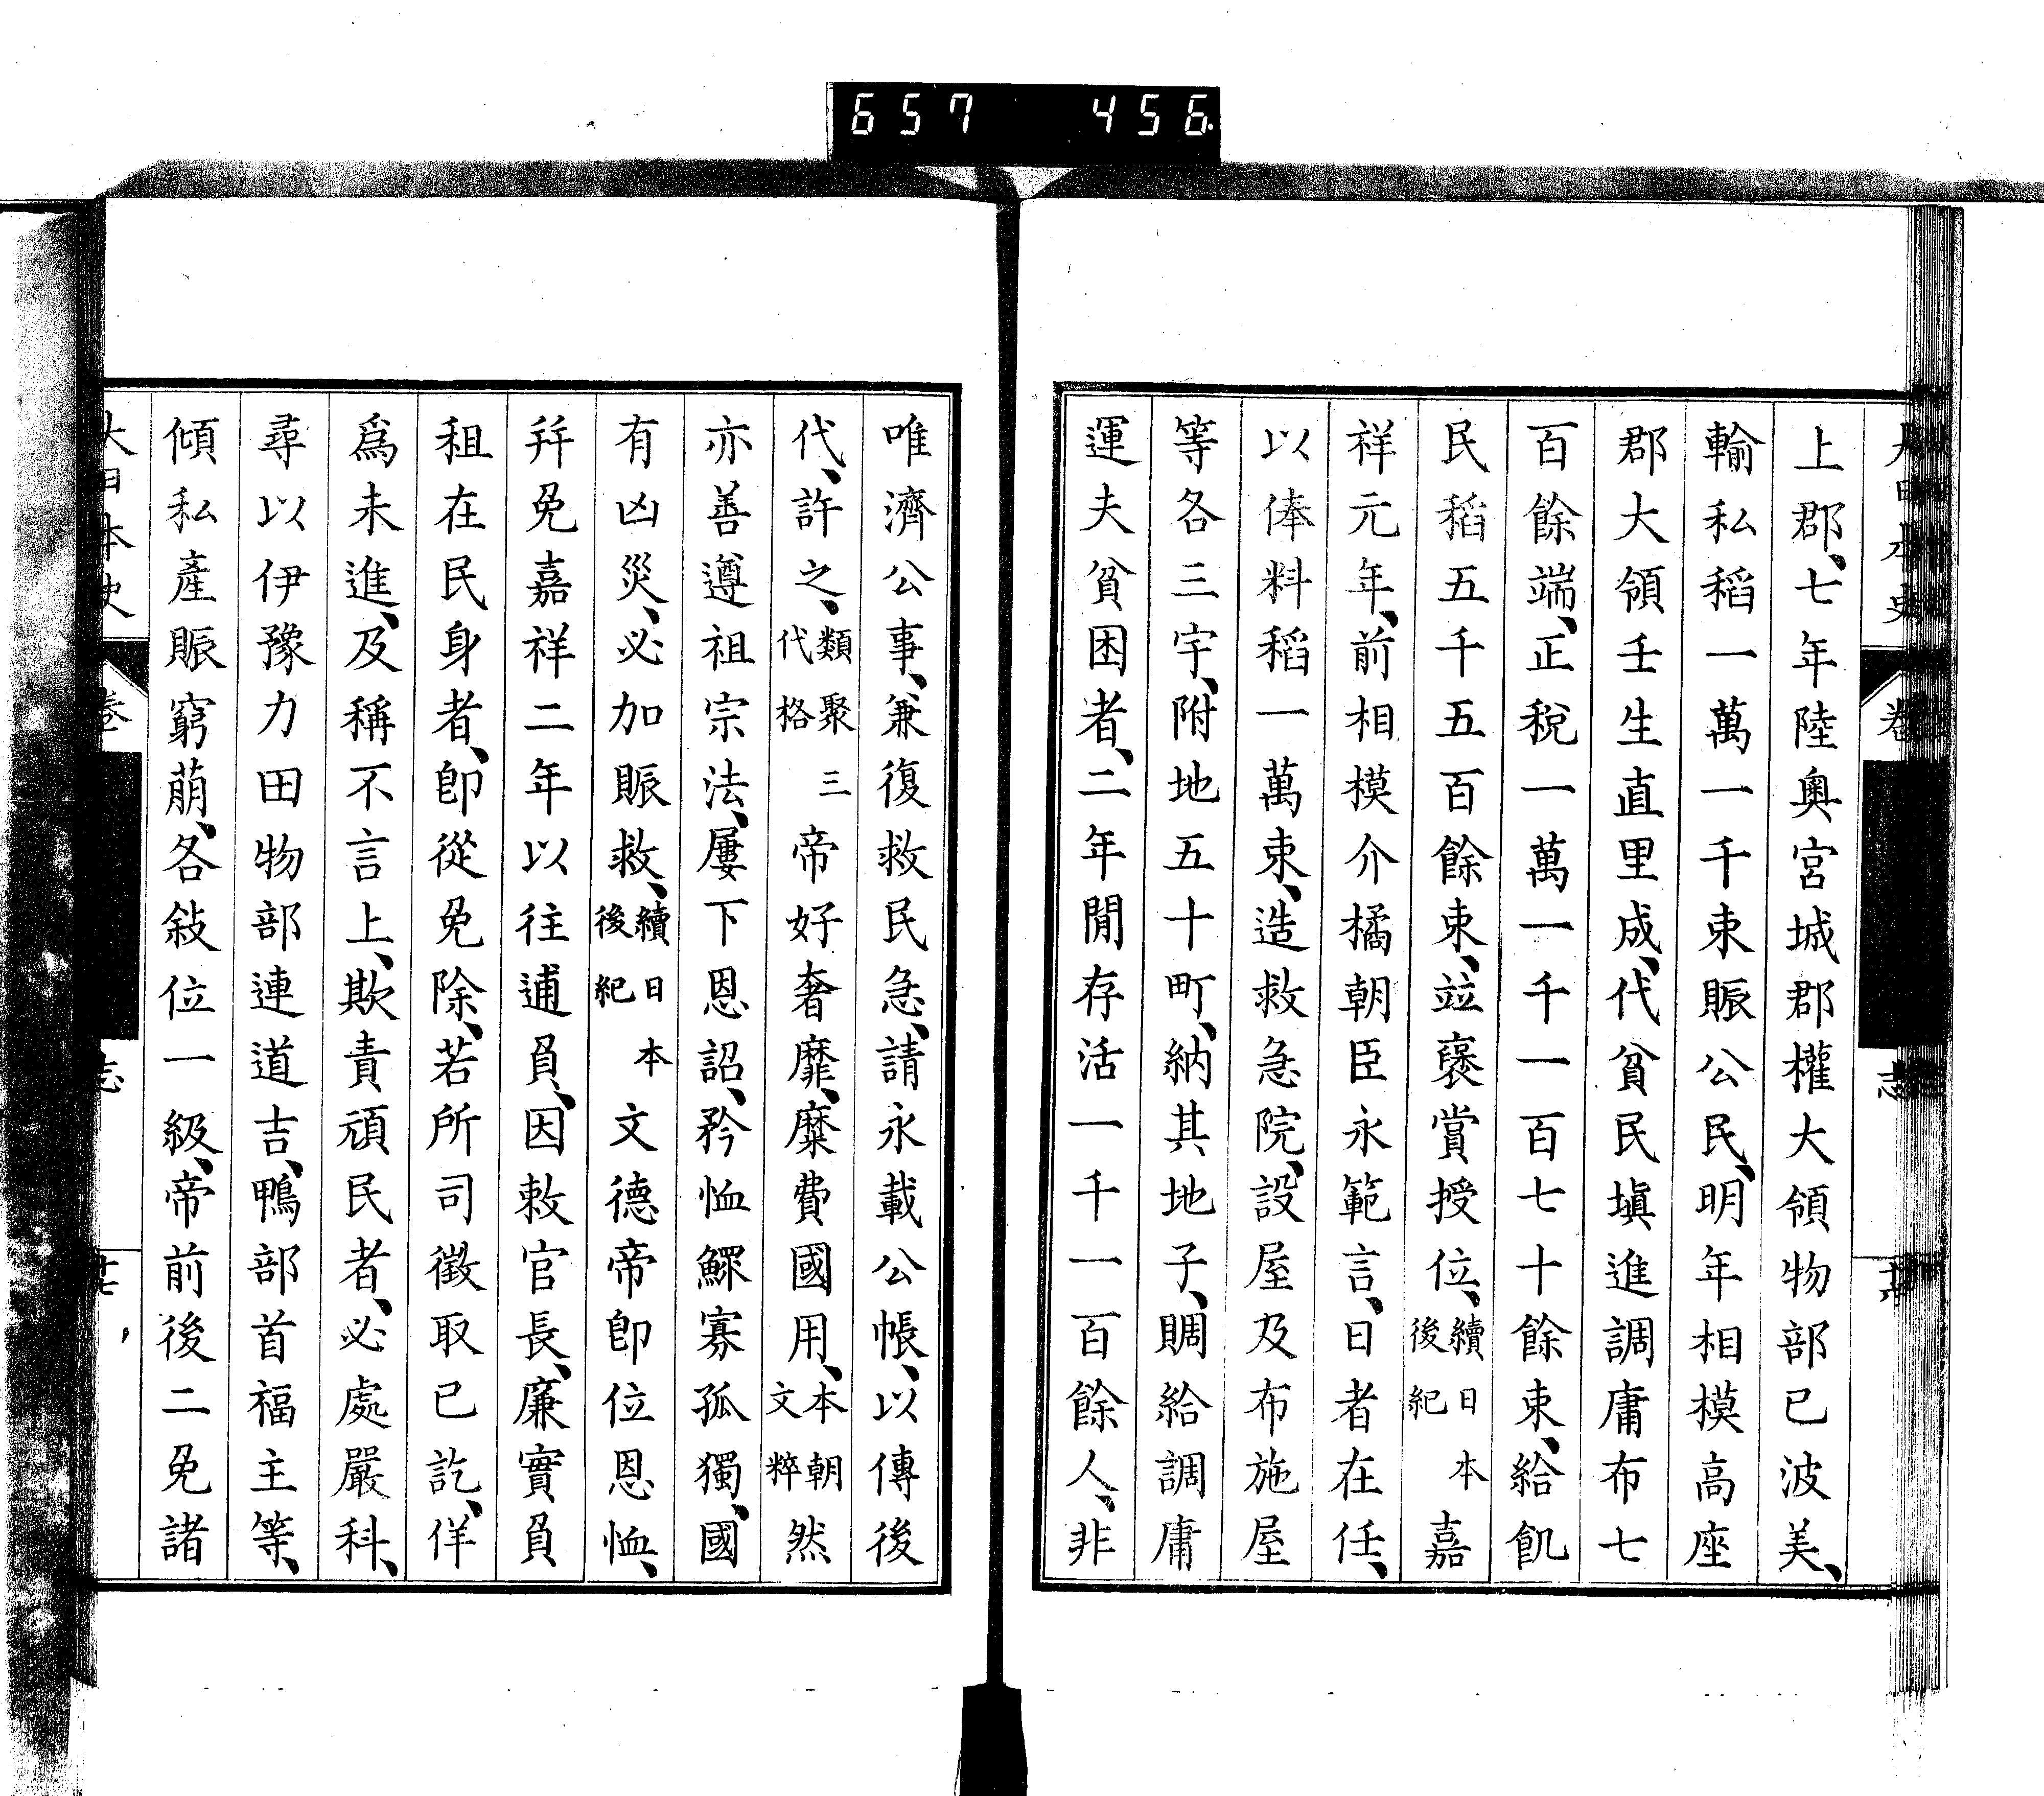 657 456
上郡、七年陸奧宮城郡權大領物部已波美、
輸私稻一萬一千束賑公民、明年相模高座
郡大領壬生直里成、代貧民塡進調庸布七
百餘端、正稅一萬一千一百七十餘束、給飢
民稻五千五百餘束、竝褒賞授位、續日本後紀嘉
祥元年、前相模介橘朝臣永範言、日者在任、
以俸料稻一萬束、造救急院、設屋及布施屋
等各三宇、附地五十町、納其地子、賙給調庸
運夫貧困者、二年閒存活一千一百餘人、非
唯濟公事、兼復救民急、請永載公帳、以傳後
代、許之、類聚三代格帝好奢靡、糜費國用、本朝文粹然
亦善遵祖宗法、屢下恩詔、矜恤鰥寡孤獨、國
有凶災、必加賑救、續日本後紀文德帝卽位恩恤、
幷免嘉祥二年以往逋負、因敕官長、廉實負
租在民身者、卽從免除、若所司徵取已訖、佯
爲未進、及稱不言上、欺責頑民者、必處嚴科、
尋以伊豫力田物部連道吉、鴨部首福主等、
傾私產賑窮萠、各敍位一級、帝前後二免諸
大日本史 卷 志 十七